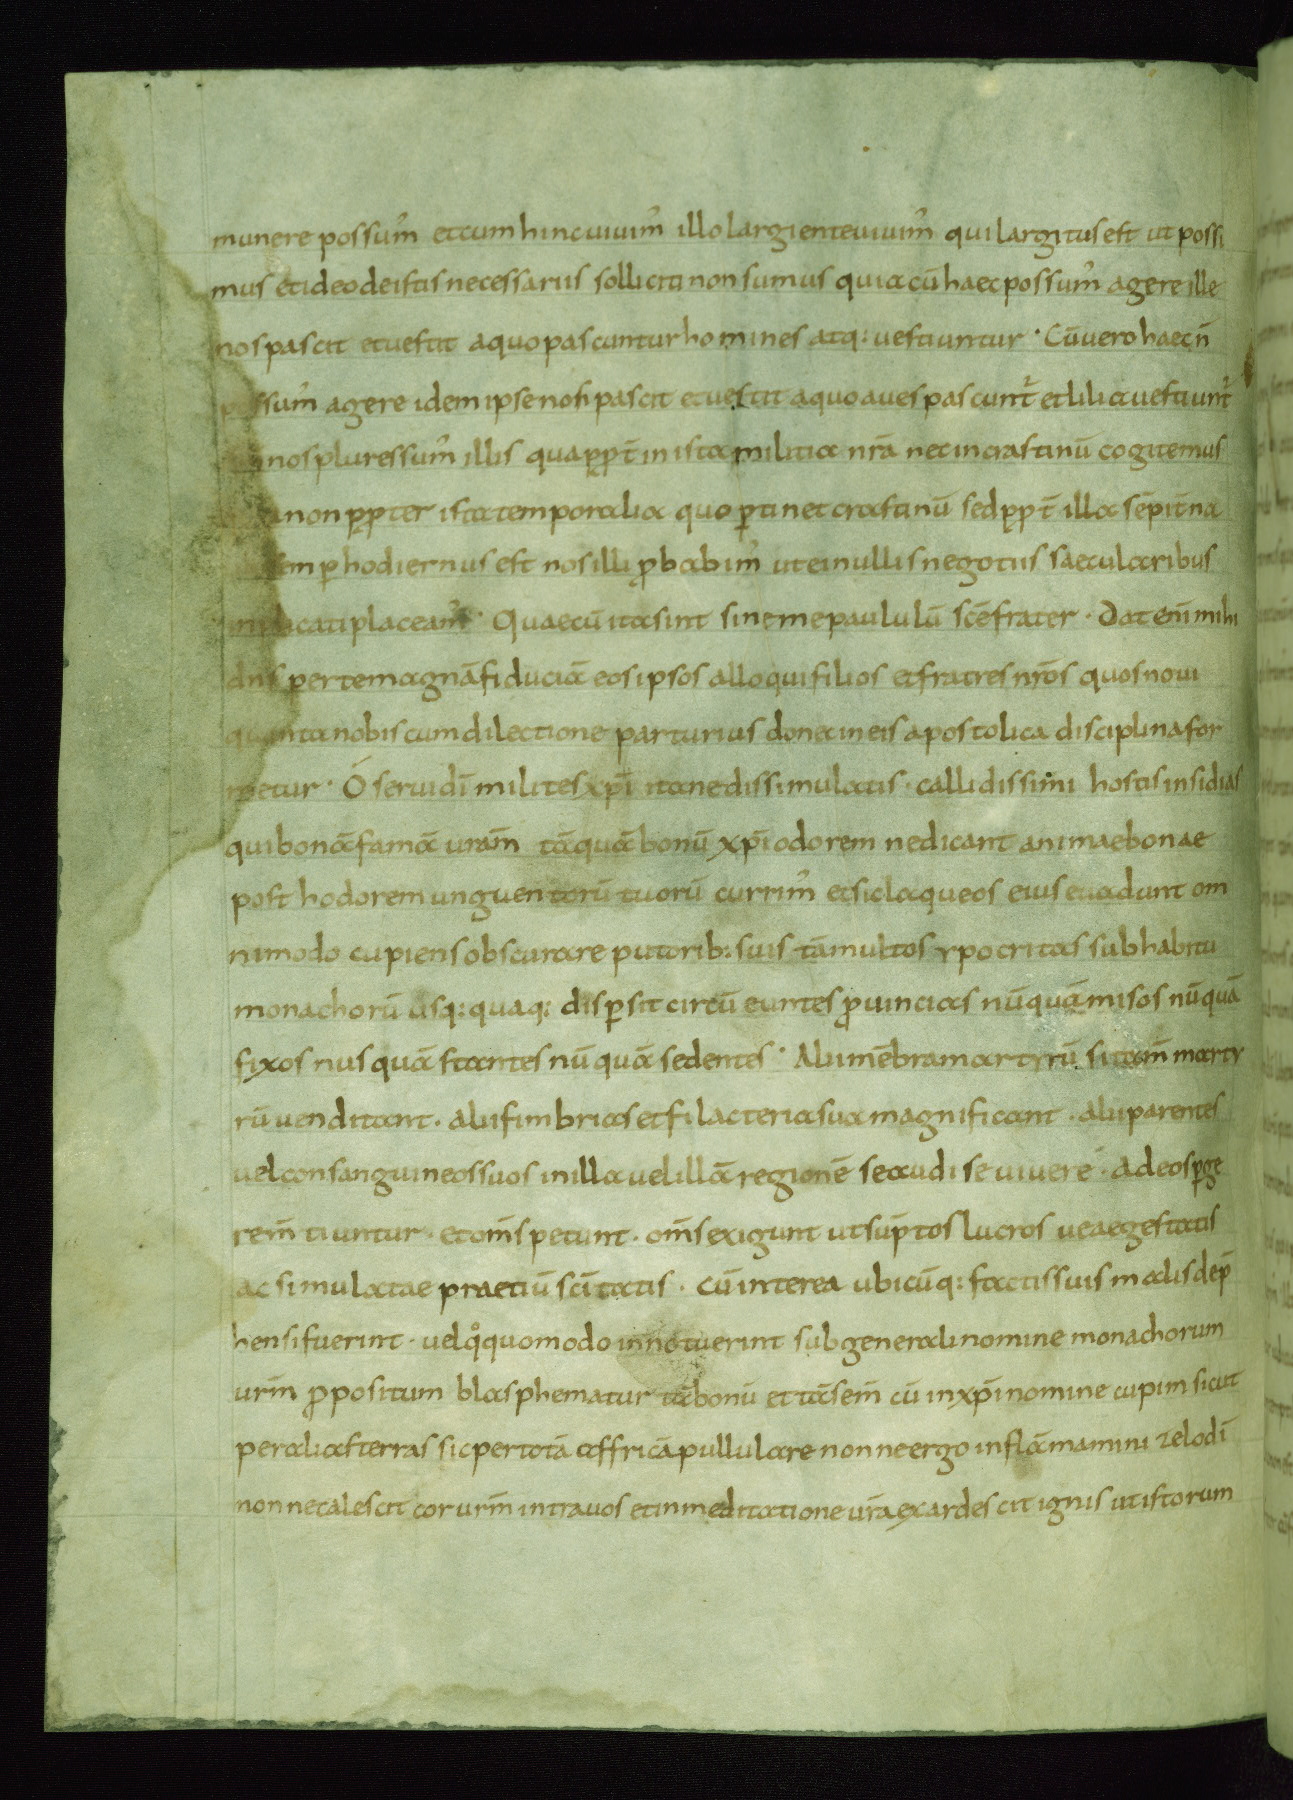 munere possum᾽ et cum hinc uiuim᾽ illo largiente uiuim᾽ qui largitus est ut possi
mus et ideo de istis necessariis solliciti non sumus quia cū haec possum᾽ agere ille
nos pascit et uestit a quo pascuntur homines atq: uestiuntur · Cū uero haec n̄
possum᾽ agere idem ipse nos pascit et uestit a quo aues pascunt᾽ et lilia uestiunt᾽
nos plures sum᾽ illis qua ꝓpt̄ in ista militia nr̄a nec in crastinū cogitemus
non ꝓpter ista temporalia quo ꝑtinet crastinū sed ꝓpt̄ illa sēpit̄na
ꝑ hodiernus est nos illi ꝓbabim᾽ ut ei nullis negotiis saecularibus
inplicati placeam᾽ · Quae cū ita sint sine me paululū sc̄e frater · Dat eni᷄ mihi
dn̄s per te magnā fiduciā eos ipsos alloqui filios et fratres nr̄os quos noui
quanta nobiscum dilectione parturius donec in eis apostolica disciplina for
metur · O serui dī milites xp̄i itane dissimulatis · callidissimi hostis insidias
qui bonā famā uram̄ tā quā bonū xp̄i odorem ne dicant animae bonae
post hodorem unguentorū tuorū currim᾽ et sic laqueos eius euadunt om
nimodo cupiens obscurare putorib: suis tā multos ypocritas sub habitu
monachorū usq: quaq: disꝑsit circū euntes ꝓuincias nūquā misos nūquā
fixos nusquā stantes nūquā sedentes · Alii mēbra martyrū si tam̄ marty
rū uenditant · alii fimbrias et filacteria sua magnificant · alii parentes
uel consanguineos suos in illa uel illā regionē se audisse uiuere · ad eos ꝑge
rem̄tiuntur · et om̄s petunt · om̄s exigunt ut sūptos lucros ueaegestatis
ac simulatae praetiū sc̄itatis · cū interea ubicūq: factis suis malis dep̄
hensi fuerint · uel qo̊quo modo innotuerint sub generali nomine monachorum
urm̄ ꝓpositum blasphematur tā bonū et tā sem̄ cū in xp̄i nomine cupim sicut
per alias terras sic per totā affricā pullulare nonne ergo inflāmamini zelo dī
nonne calescit cor urm̄ intra uos et in meditatione ur̄a exardescit ignis ut istorum